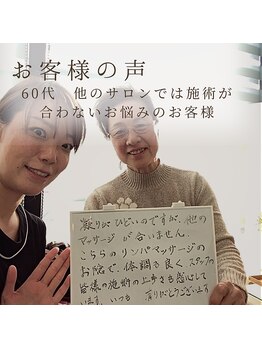 お客様の声
60代　他のサロンでは施術が
合わないお悩みのお客様
凝りがひどいのですが、他の
マッサージが合いません。
こちらのリンパマッサージの
お陰で、体調も良く スタッフの
皆様の施術の上手さも感心して
います。いつも ありがとうございます